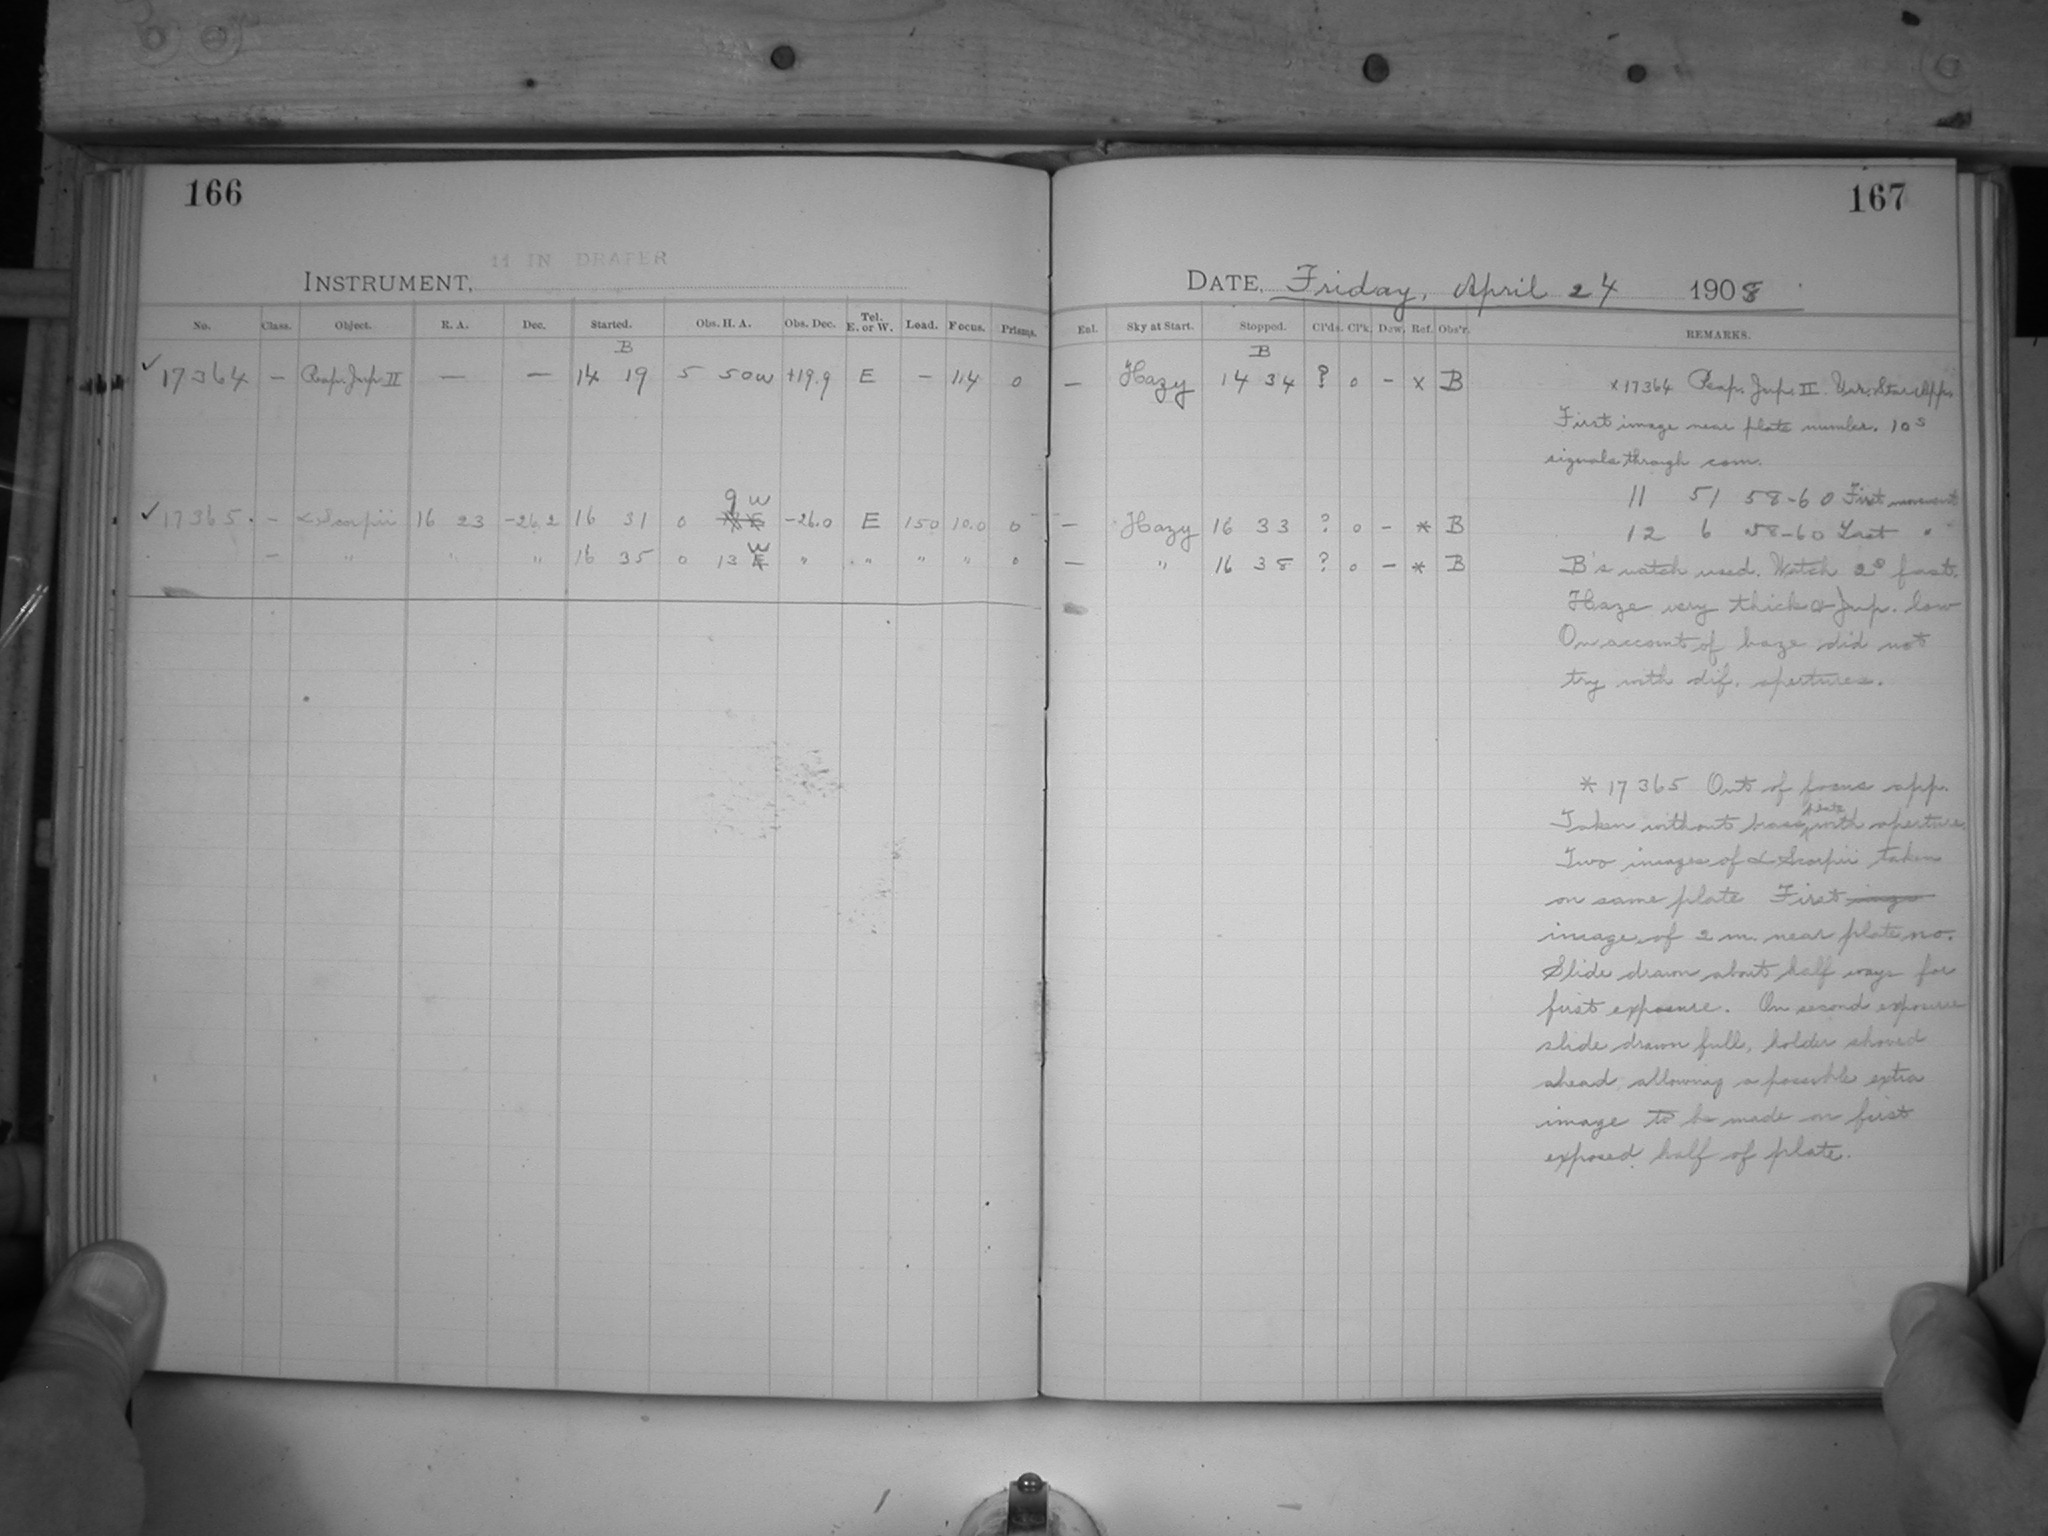 166
11 IN DRAPER
INSTRUMENT,
No. Class. Object. R. A. Dec. Started. Obs. H. A. Obs. Dec. Tel. E. or W. Load. Focus. Prisms.
B
✓ 17364 — Reap. Jup. II — — 14 19 5 50w +19.9 E — 11.4 0
9 w
✓ 17365. — α Scorpii 16 23 -26.2 16 31 0 -26.0 E 150 10.0 0
— " " " 16 35 0 13 W " " " " 0
167
DATE, Friday, April 24 1908
Enl. Sky at Start. Stopped. Cl'ds. Cl'k. Dew. Ref. Obs'r. REMARKS.
B
— Hazy 14 34 ? 0 — x B
— Hazy 16 33 ? 0 — * B
— " 16 38 ? 0 — * B
x 17364 Reap. Jup. II. Var. Star App.
First image near plate number. 10s
signals through com.
11 51 58-60 First movement
12 6 58-60 Last "
B's watch used. Watch 2s fast.
Haze very thick & Jup. low
On account of haze did not
try with dif. apertures.
* 17365 Out of focus app.
plate
Taken without brass with aperture.
Two images of α Scorpii taken
on same plate First image
image of 2 m. near plate no.
Slide drawn about half ways for
first exposure. On second exposure
slide drawn full, holder shoved
ahead, allowing a possible extra
image to be made on first
exposed half of plate.